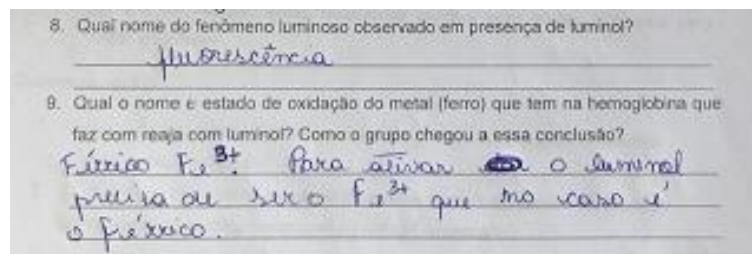 8. Qual nome do fenômeno luminoso observado em presença de luminol?
fluorescência
9. Qual o nome e estado de oxidação do metal (ferro) que tem na hemoglobina que
faz com reaja com luminol? Como o grupo chegou a essa conclusão?
Férrico Fe³⁺. Para ativar o luminol
precisa de ser o Fe³⁺ que no caso é
o férrico.